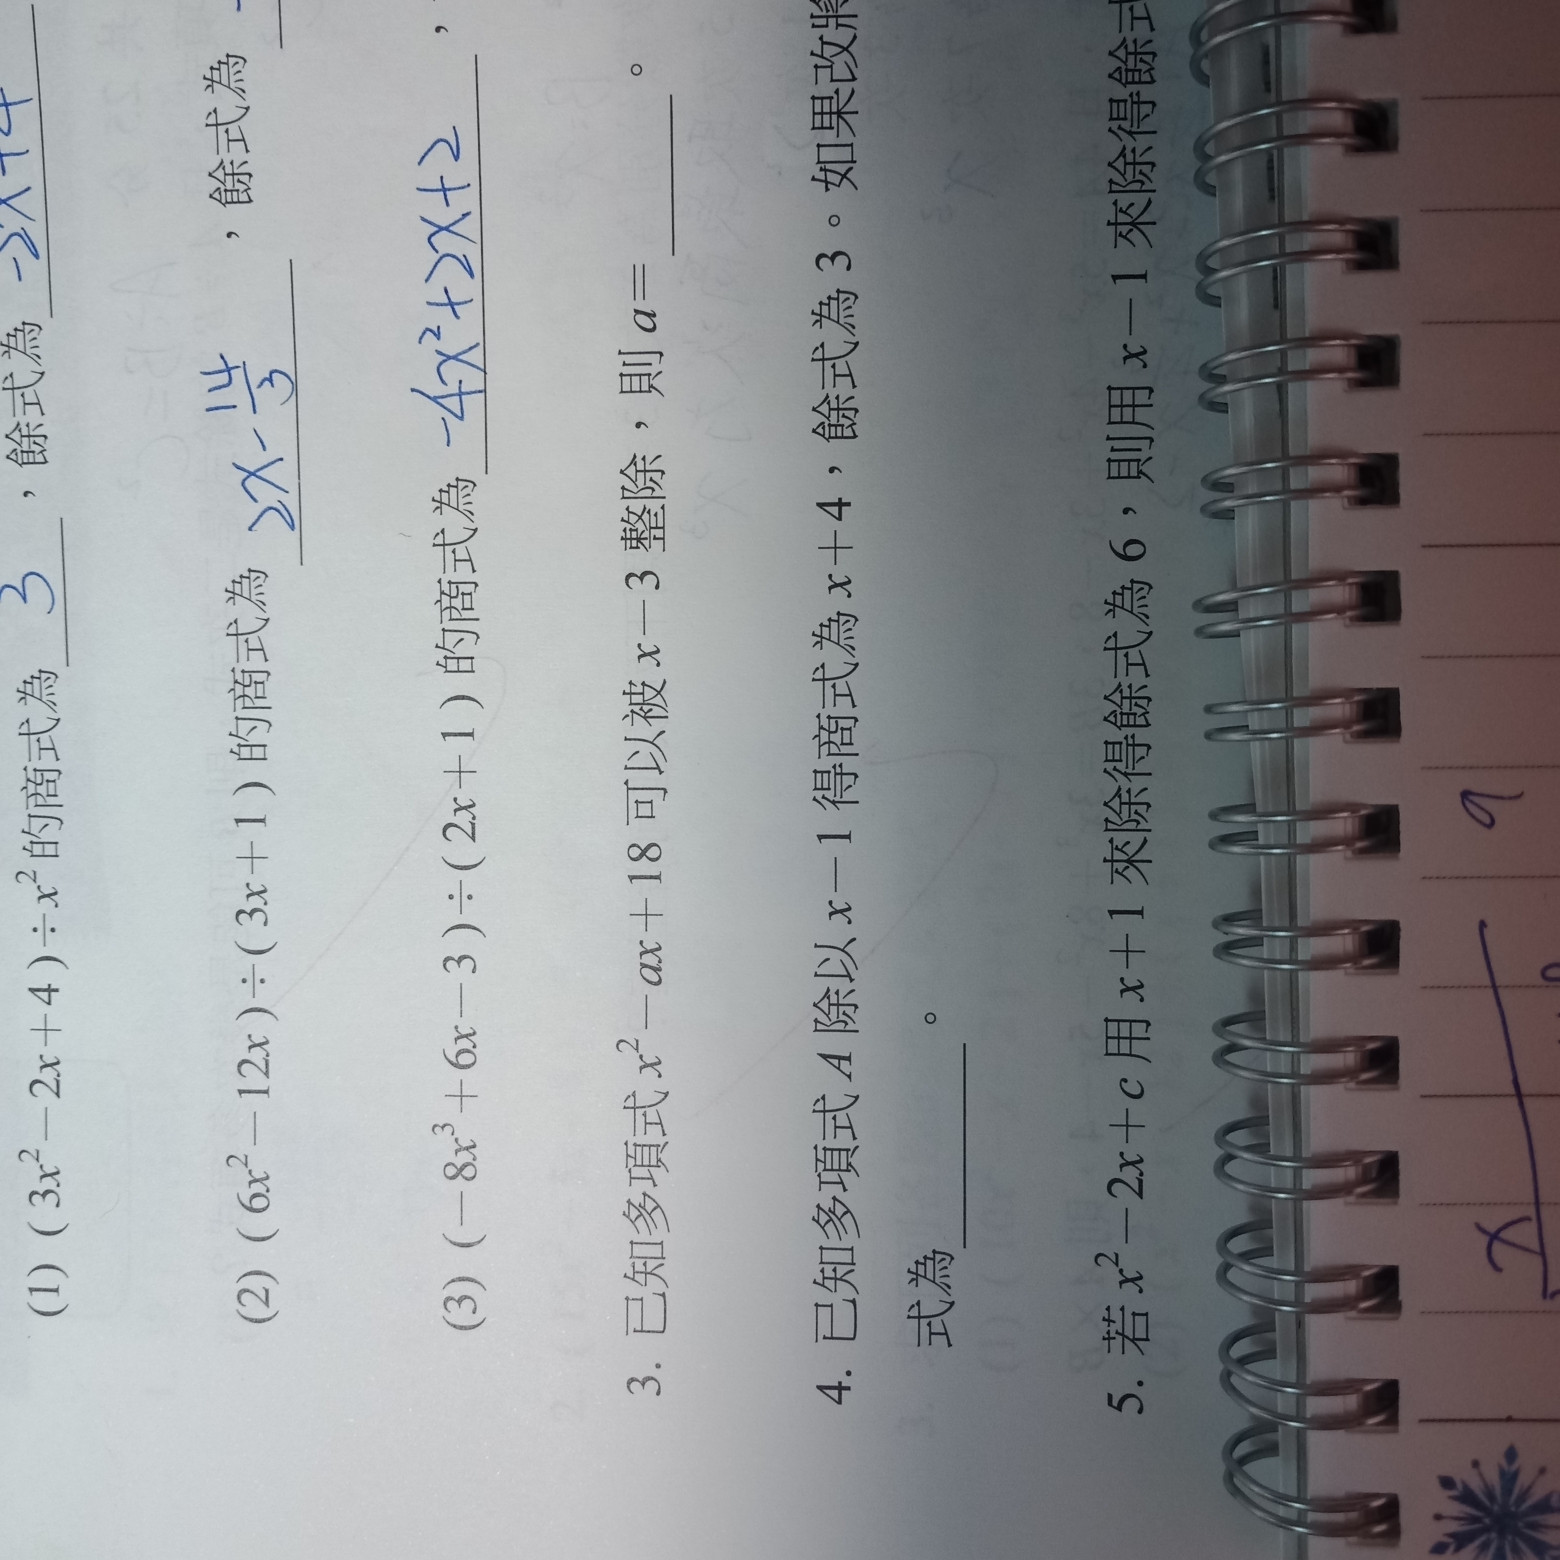 (1) (3x²－2x＋4)÷x² 的商式為 3 ，餘式為 -2x+4
(2) (6x²－12x)÷(3x＋1) 的商式為 2x-14/3 ，餘式為
(3) (－8x³＋6x－3)÷(2x＋1) 的商式為 -4x²+2x+2 ，
3. 已知多項式 x²－ax＋18 可以被 x－3 整除，則 a＝ 。
4. 已知多項式 A 除以 x－1 得商式為 x＋4，餘式為 3。如果改將
式為 。
5. 若 x²－2x＋c 用 x＋1 來除得餘式為 6，則用 x－1 來除得餘式
x 9